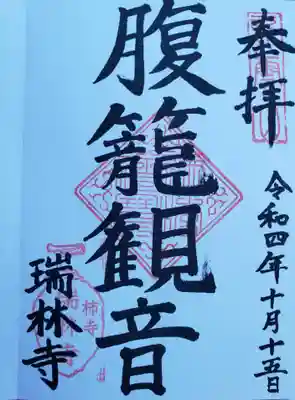 奉拝
令和四年十月十五日
腹籠観音
瑞林寺
柿寺